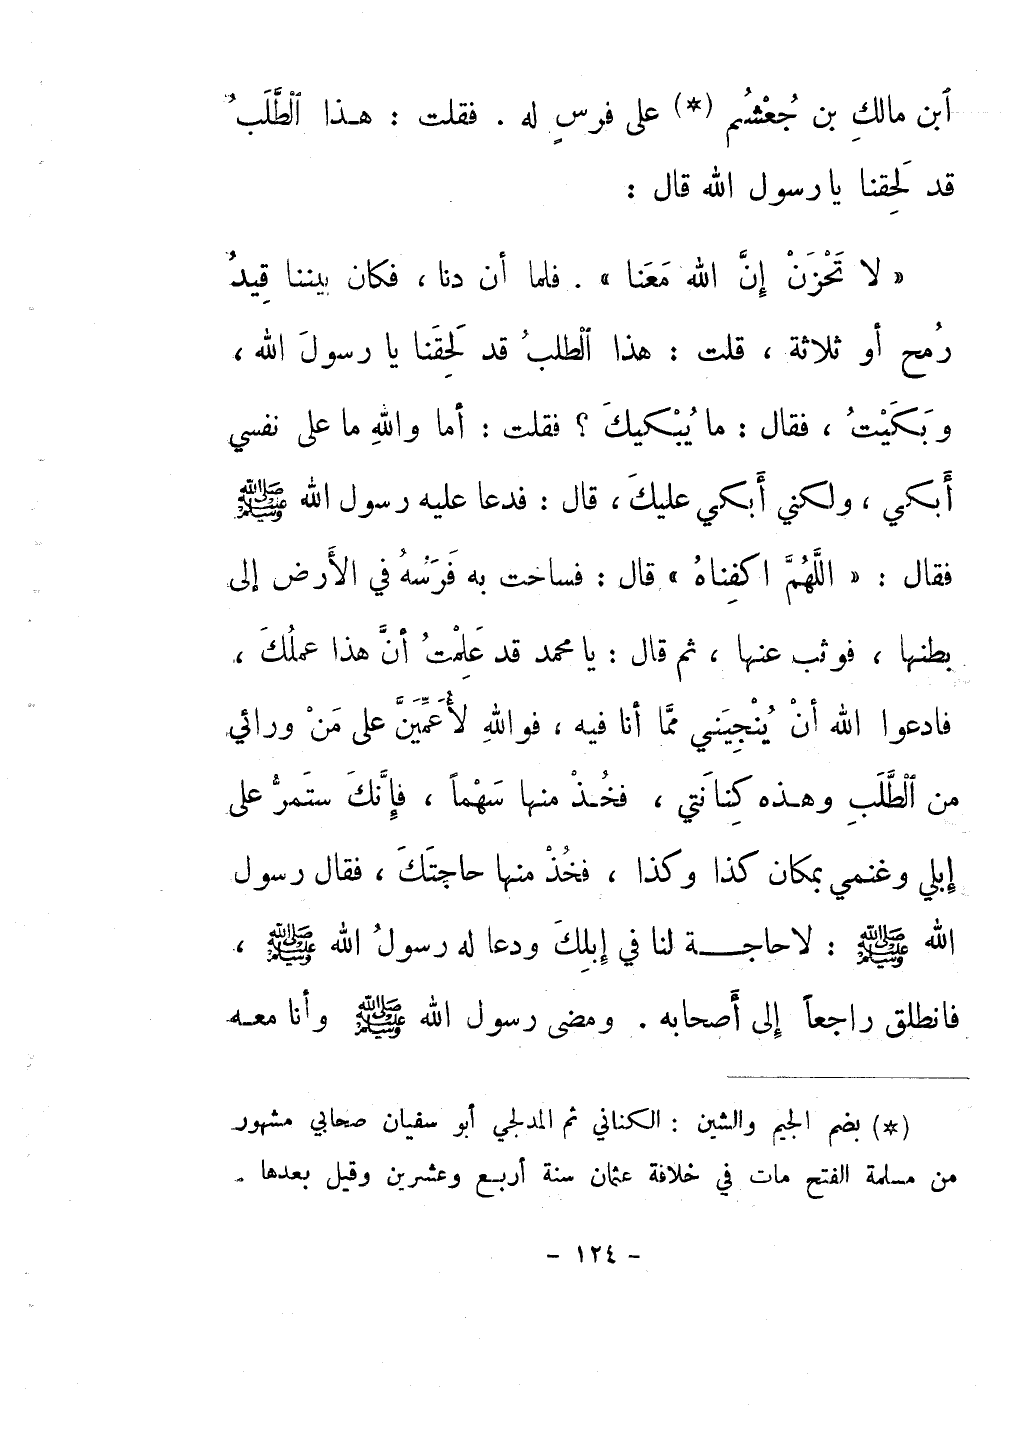 ٱبن مالكِ بن جُعْشُم (*) على فرسٍ له . فقلت : هـذا ٱلطَّلَبُ
قد لَحِقنا يا رسول الله قال :
« لا تَحْزَنْ إِنَّ الله مَعَنا » . فلما أن دنا ، فكان بيننا قِيدُ
رُمح أو ثلاثة ، قلت : هذا ٱلطلبُ قد لَحِقَنا يا رسولَ الله ،
وَبَكَيْتُ ، فقال : ما يُبْكيكَ ؟ فقلت : أما واللهِ ما على نفسي
أَبكي ، ولكني أَبكي عليكَ ، قال : فدعا عليه رسول الله ﷺ
فقال : « اللَّهُمَّ اكفِناهُ » قال : فساخت به فَرَسُهُ في الأَرض إلى
بطنها ، فوثب عنها ، ثم قال : يا محمد قد عَلِمْتُ أنَّ هذا عملُكَ ،
فادعوا الله أنْ يُنْجِيَني ممَّا أنا فيه ، فواللهِ لأُعَمِّيَنَّ على مَنْ ورائي
من ٱلطَّلَبِ وهـذه كِنانَتي ، فخُـذْ منها سَهْماً ، فإِنَّكَ ستَمرُّ على
إِبلي وغنمي بمكان كذا وكذا ، فخُذْ منها حاجتَكَ ، فقال رسول
الله ﷺ : لاحاجـــة لنا في إِبلِكَ ودعا له رسولُ الله ﷺ ،
فانطلق راجعاً إِلى أَصحابه . ومضى رسول الله ﷺ وأنا معـه
(*) بضم الجيم والشين : الكناني ثم المدلجي أبو سفيان صحابي مشهور
من مسلمة الفتح مات في خلافة عثمان سنة أربـع وعشرين وقيل بعدها .
- ١٢٤ -